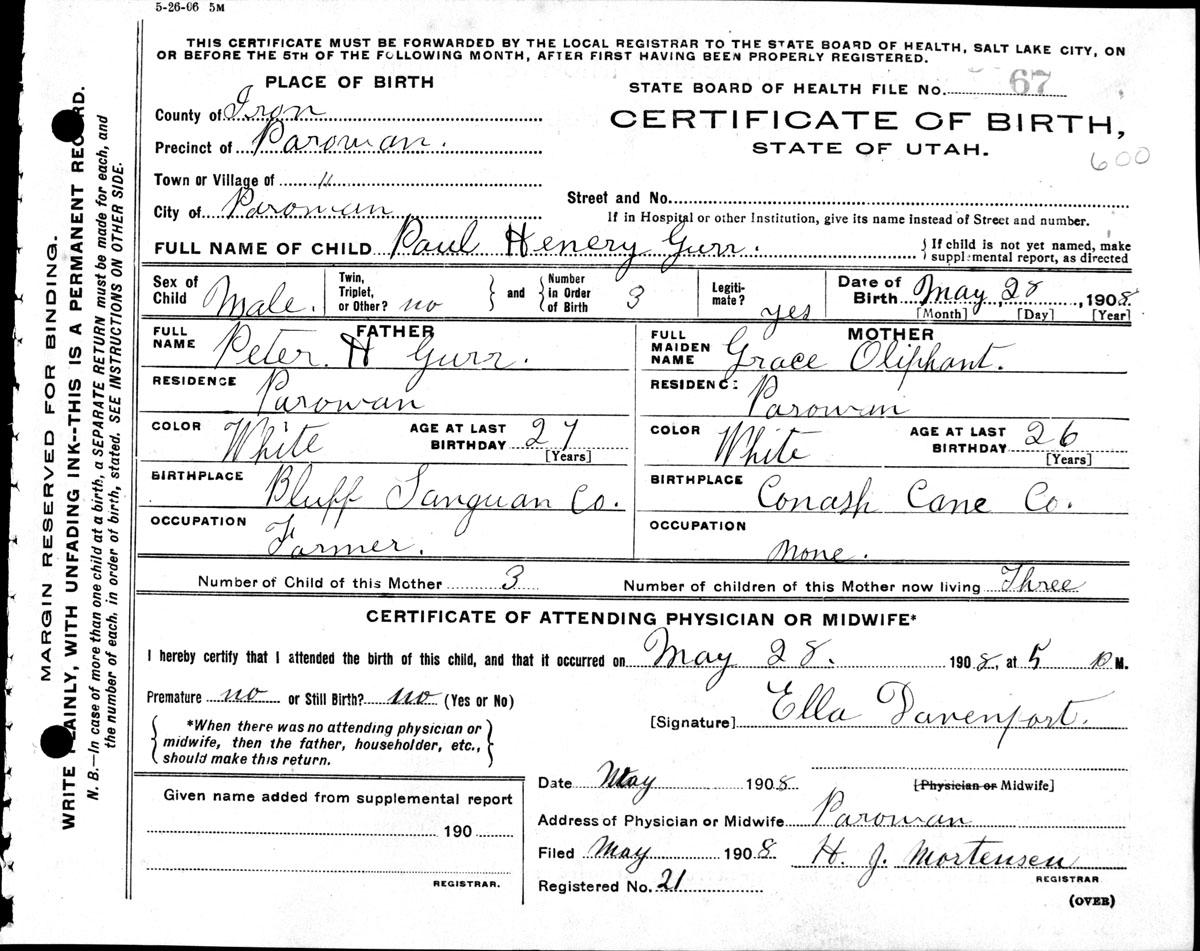 5-26-06 5M
THIS CERTIFICATE MUST BE FORWARDED BY THE LOCAL REGISTRAR TO THE STATE BOARD OF HEALTH, SALT LAKE CITY, ON
OR BEFORE THE 5TH OF THE FOLLOWING MONTH, AFTER FIRST HAVING BEEN PROPERLY REGISTERED.
MARGIN RESERVED FOR BINDING.
WRITE PLAINLY, WITH UNFADING INK--THIS IS A PERMANENT RECORD.
N. B.—In case of more than one child at a birth, a SEPARATE RETURN must be made for each, and
the number of each, in order of birth, stated. SEE INSTRUCTIONS ON OTHER SIDE.
PLACE OF BIRTH
County of Iron
Precinct of Parowan.
Town or Village of "
City of Parowan
STATE BOARD OF HEALTH FILE No. 67
CERTIFICATE OF BIRTH,
STATE OF UTAH.
600
Street and No.
If in Hospital or other Institution, give its name instead of Street and number.
FULL NAME OF CHILD Paul Henery Gurr.
{ If child is not yet named, make
supplemental report, as directed
Sex of Child Male.
Twin, Triplet, or Other? no
and
Number in Order of Birth 3
Legiti-mate? yes
Date of Birth May, 28, 1908.
[Month] [Day] [Year]
FATHER
FULL NAME Peter. H Gurr.
RESIDENCE Parowan
COLOR White
AGE AT LAST BIRTHDAY 27
[Years]
BIRTHPLACE Bluff Sanguan Co.
OCCUPATION Farmer.
MOTHER
FULL MAIDEN NAME Grace Oliphant.
RESIDENCE Parowan
COLOR White
AGE AT LAST BIRTHDAY 26
[Years]
BIRTHPLACE Conash Cane Co.
OCCUPATION None.
Number of Child of this Mother 3
Number of children of this Mother now living Three
CERTIFICATE OF ATTENDING PHYSICIAN OR MIDWIFE*
I hereby certify that I attended the birth of this child, and that it occurred on May 28. 1908, at 5 P M.
Premature no or Still Birth? no (Yes or No)
[Signature] Ella Davenport.
*When there was no attending physician or
midwife, then the father, householder, etc.,
should make this return.
Date May 1908
[Physician or Midwife]
Given name added from supplemental report
190
REGISTRAR.
Address of Physician or Midwife Parowan
Filed May 1908 H. J. Mortensen
REGISTRAR
Registered No. 21
(OVER)